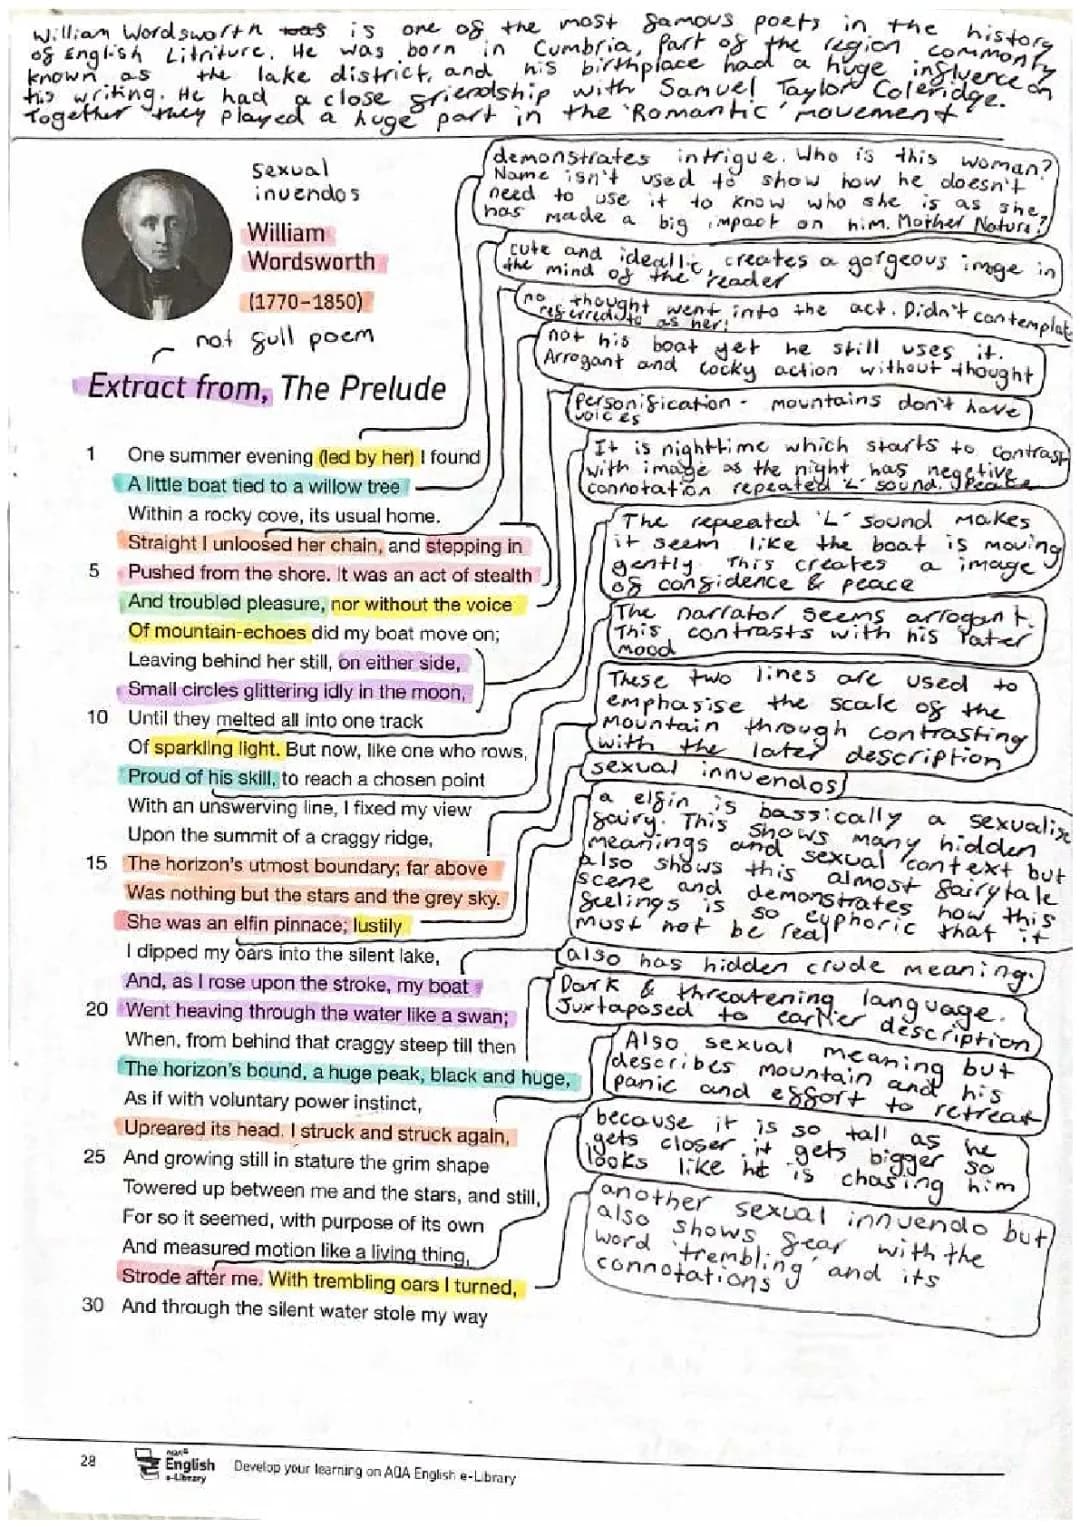 William Wordsworth was is one of the most famous poets in the history
of English Litriture. He was born in Cumbria, part of the region commonly
known as the lake district, and his birthplace had a huge influence on
his writing. He had a close friendship with Samuel Taylor Coleridge.
Together they played a huge part in the 'Romantic' movement
sexual
inuendos
William
Wordsworth
(1770–1850)
not full poem
Extract from, The Prelude
1 One summer evening (led by her) I found
A little boat tied to a willow tree
Within a rocky cove, its usual home.
Straight I unloosed her chain, and stepping in
5 Pushed from the shore. It was an act of stealth
And troubled pleasure, nor without the voice
Of mountain-echoes did my boat move on;
Leaving behind her still, on either side,
Small circles glittering idly in the moon,
10 Until they melted all into one track
Of sparkling light. But now, like one who rows,
Proud of his skill, to reach a chosen point
With an unswerving line, I fixed my view
Upon the summit of a craggy ridge,
15 The horizon's utmost boundary; far above
Was nothing but the stars and the grey sky.
She was an elfin pinnace; lustily
I dipped my oars into the silent lake,
And, as I rose upon the stroke, my boat
20 Went heaving through the water like a swan;
When, from behind that craggy steep till then
The horizon's bound, a huge peak, black and huge,
As if with voluntary power instinct,
Upreared its head. I struck and struck again,
25 And growing still in stature the grim shape
Towered up between me and the stars, and still,
For so it seemed, with purpose of its own
And measured motion like a living thing,
Strode after me. With trembling oars I turned,
30 And through the silent water stole my way
demonstrates intrigue. Who is this woman?
Name isn't used to show how he doesn't
need to use it to know who she is as she
has made a big impact on him. Mother Nature?
cute and ideallic, creates a gorgeous image in
the mind of the reader
no thought went into the act. Didn't contemplate
referred to as her!
not his boat yet he still uses it.
Arrogant and cocky action without thought
personification - mountains don't have
voices
It is nighttime which starts to contrast
with image as the night has negetive
connotation repeated 'L' sound. peace
The repeated 'L' sound makes
it seem like the boat is moving
gently. This creates a image
of confidence & peace
The narrator seems arrogant.
This contrasts with his later
mood
These two lines are used to
emphasise the scale of the
mountain through contrasting
with the later description
sexual innuendos
a elfin is bassically a sexualize
fairy. This shows many hidden
meanings and sexual context but
also shows this almost fairytale
scene and demonstrates how this
feelings is so euphoric that it
must not be real
also has hidden crude meaning.
Dark & threatening language.
Juxtaposed to earlier description
Also sexual meaning but
describes mountain and his
panic and effort to retreat
because it is so tall as he
gets closer it gets bigger so
looks like he is chasing him
another sexual innuendo but
also shows fear with the
word 'trembling' and its
connotations
28
AQA
English
e-Library
Develop your learning on AQA English e-Library